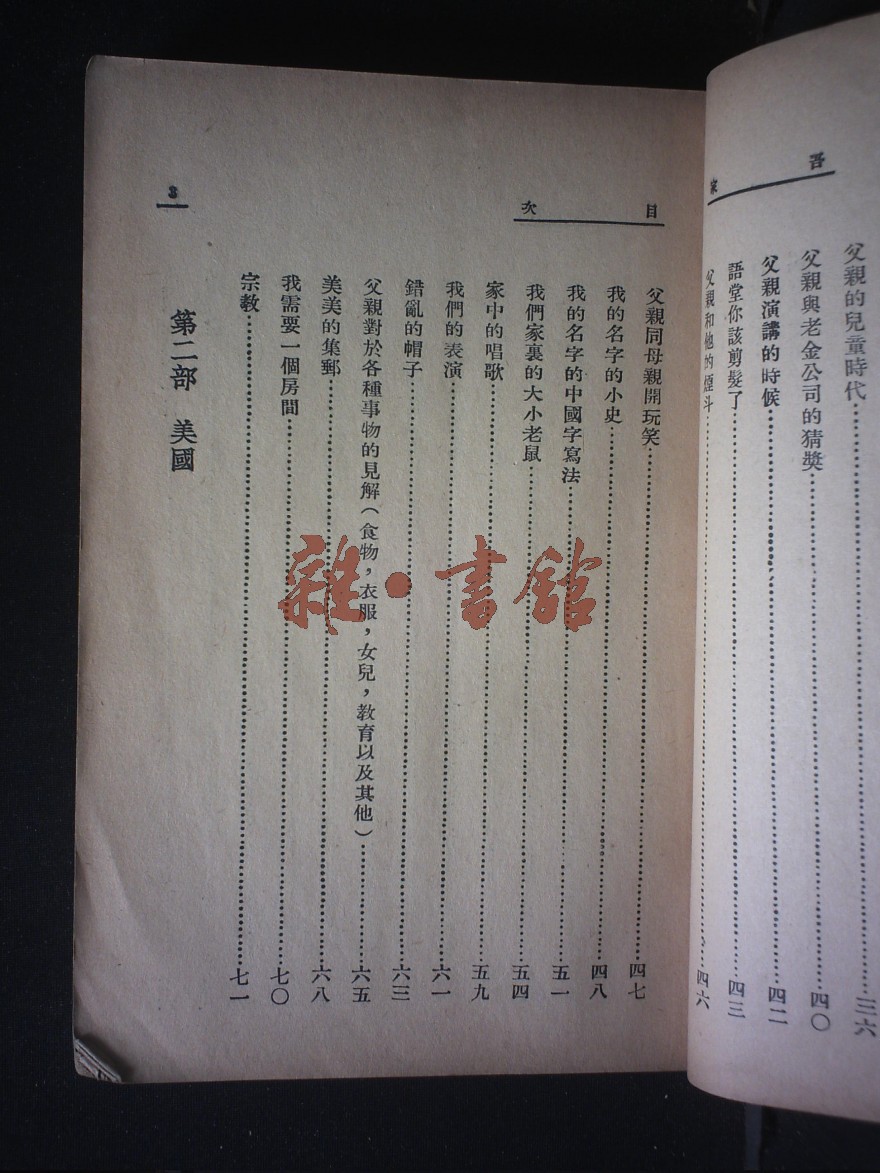 吾家
父親的兒童時代……三六
父親與老金公司的猜獎……四〇
父親演講的時候……四二
語堂你該剪髮了……四三
父親和他的煙斗……四六
目次
3
父親同母親開玩笑……四七
我的名字的小史……四八
我的名字的中國字寫法……五一
我們家裏的大小老鼠……五四
家中的唱歌……五九
我們的表演……六一
錯亂的帽子……六三
父親對於各種事物的見解(食物，衣服，女兒，教育以及其他)……六五
美美的集郵……六八
我需要一個房間……七〇
宗教……七一
第二部 美國
雜·書館